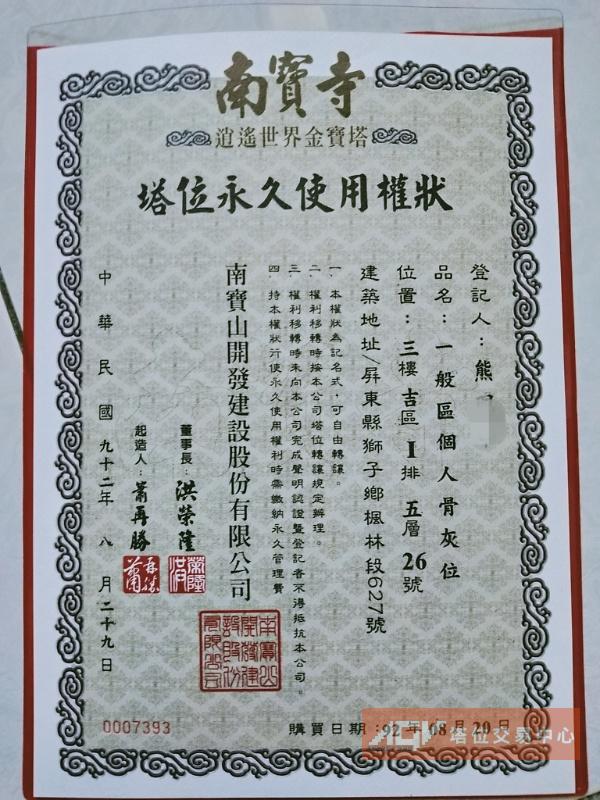 南寶寺
逍遙世界金寶塔
塔位永久使用權狀
登記人：熊
品名：一般區個人骨灰位
位置：三樓吉區I排五層26號
建築地址/屏東縣獅子鄉楓林段627號
一 本權狀為記名式，可自由轉讓。
二 權利移轉時按本公司塔位轉讓規定辦理。
三 權利移轉時未向本公司完成聲明認證暨登記者不得抵抗本公司。
四 持本權狀行使永久使用權利時需繳納永久管理費
南寶山開發建設股份有限公司
董事長：洪榮隆
起造人：蕭再勝
中華民國九十二年八月二十九日
0007393
購買日期：92年08月20日
塔位交易中心